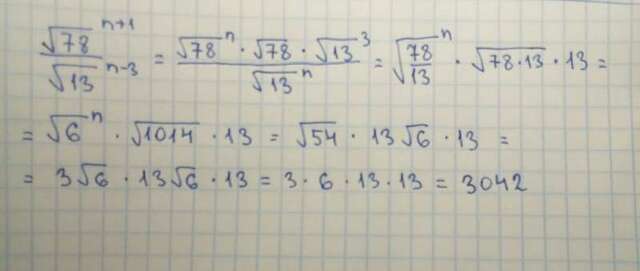 √78^(n+1) / √13^(n-3) = (√78^n · √78 · √13^3) / √13^n = √(78/13)^n · √(78·13) · 13 =
= √6^n · √1014 · 13 = √54 · 13√6 · 13 =
= 3√6 · 13√6 · 13 = 3 · 6 · 13 · 13 = 3042